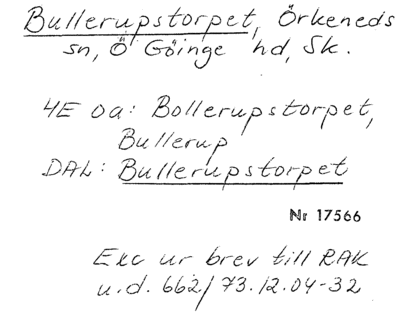 Bullerupstorpet, Örkeneds
sn, Ö Göinge hd, Sk.
4E oa: Bollerupstorpet,
Bullerup
DAL: Bullerupstorpet
Nr 17566
Exc ur brev till RAK
u.d. 662/73.12.04-32